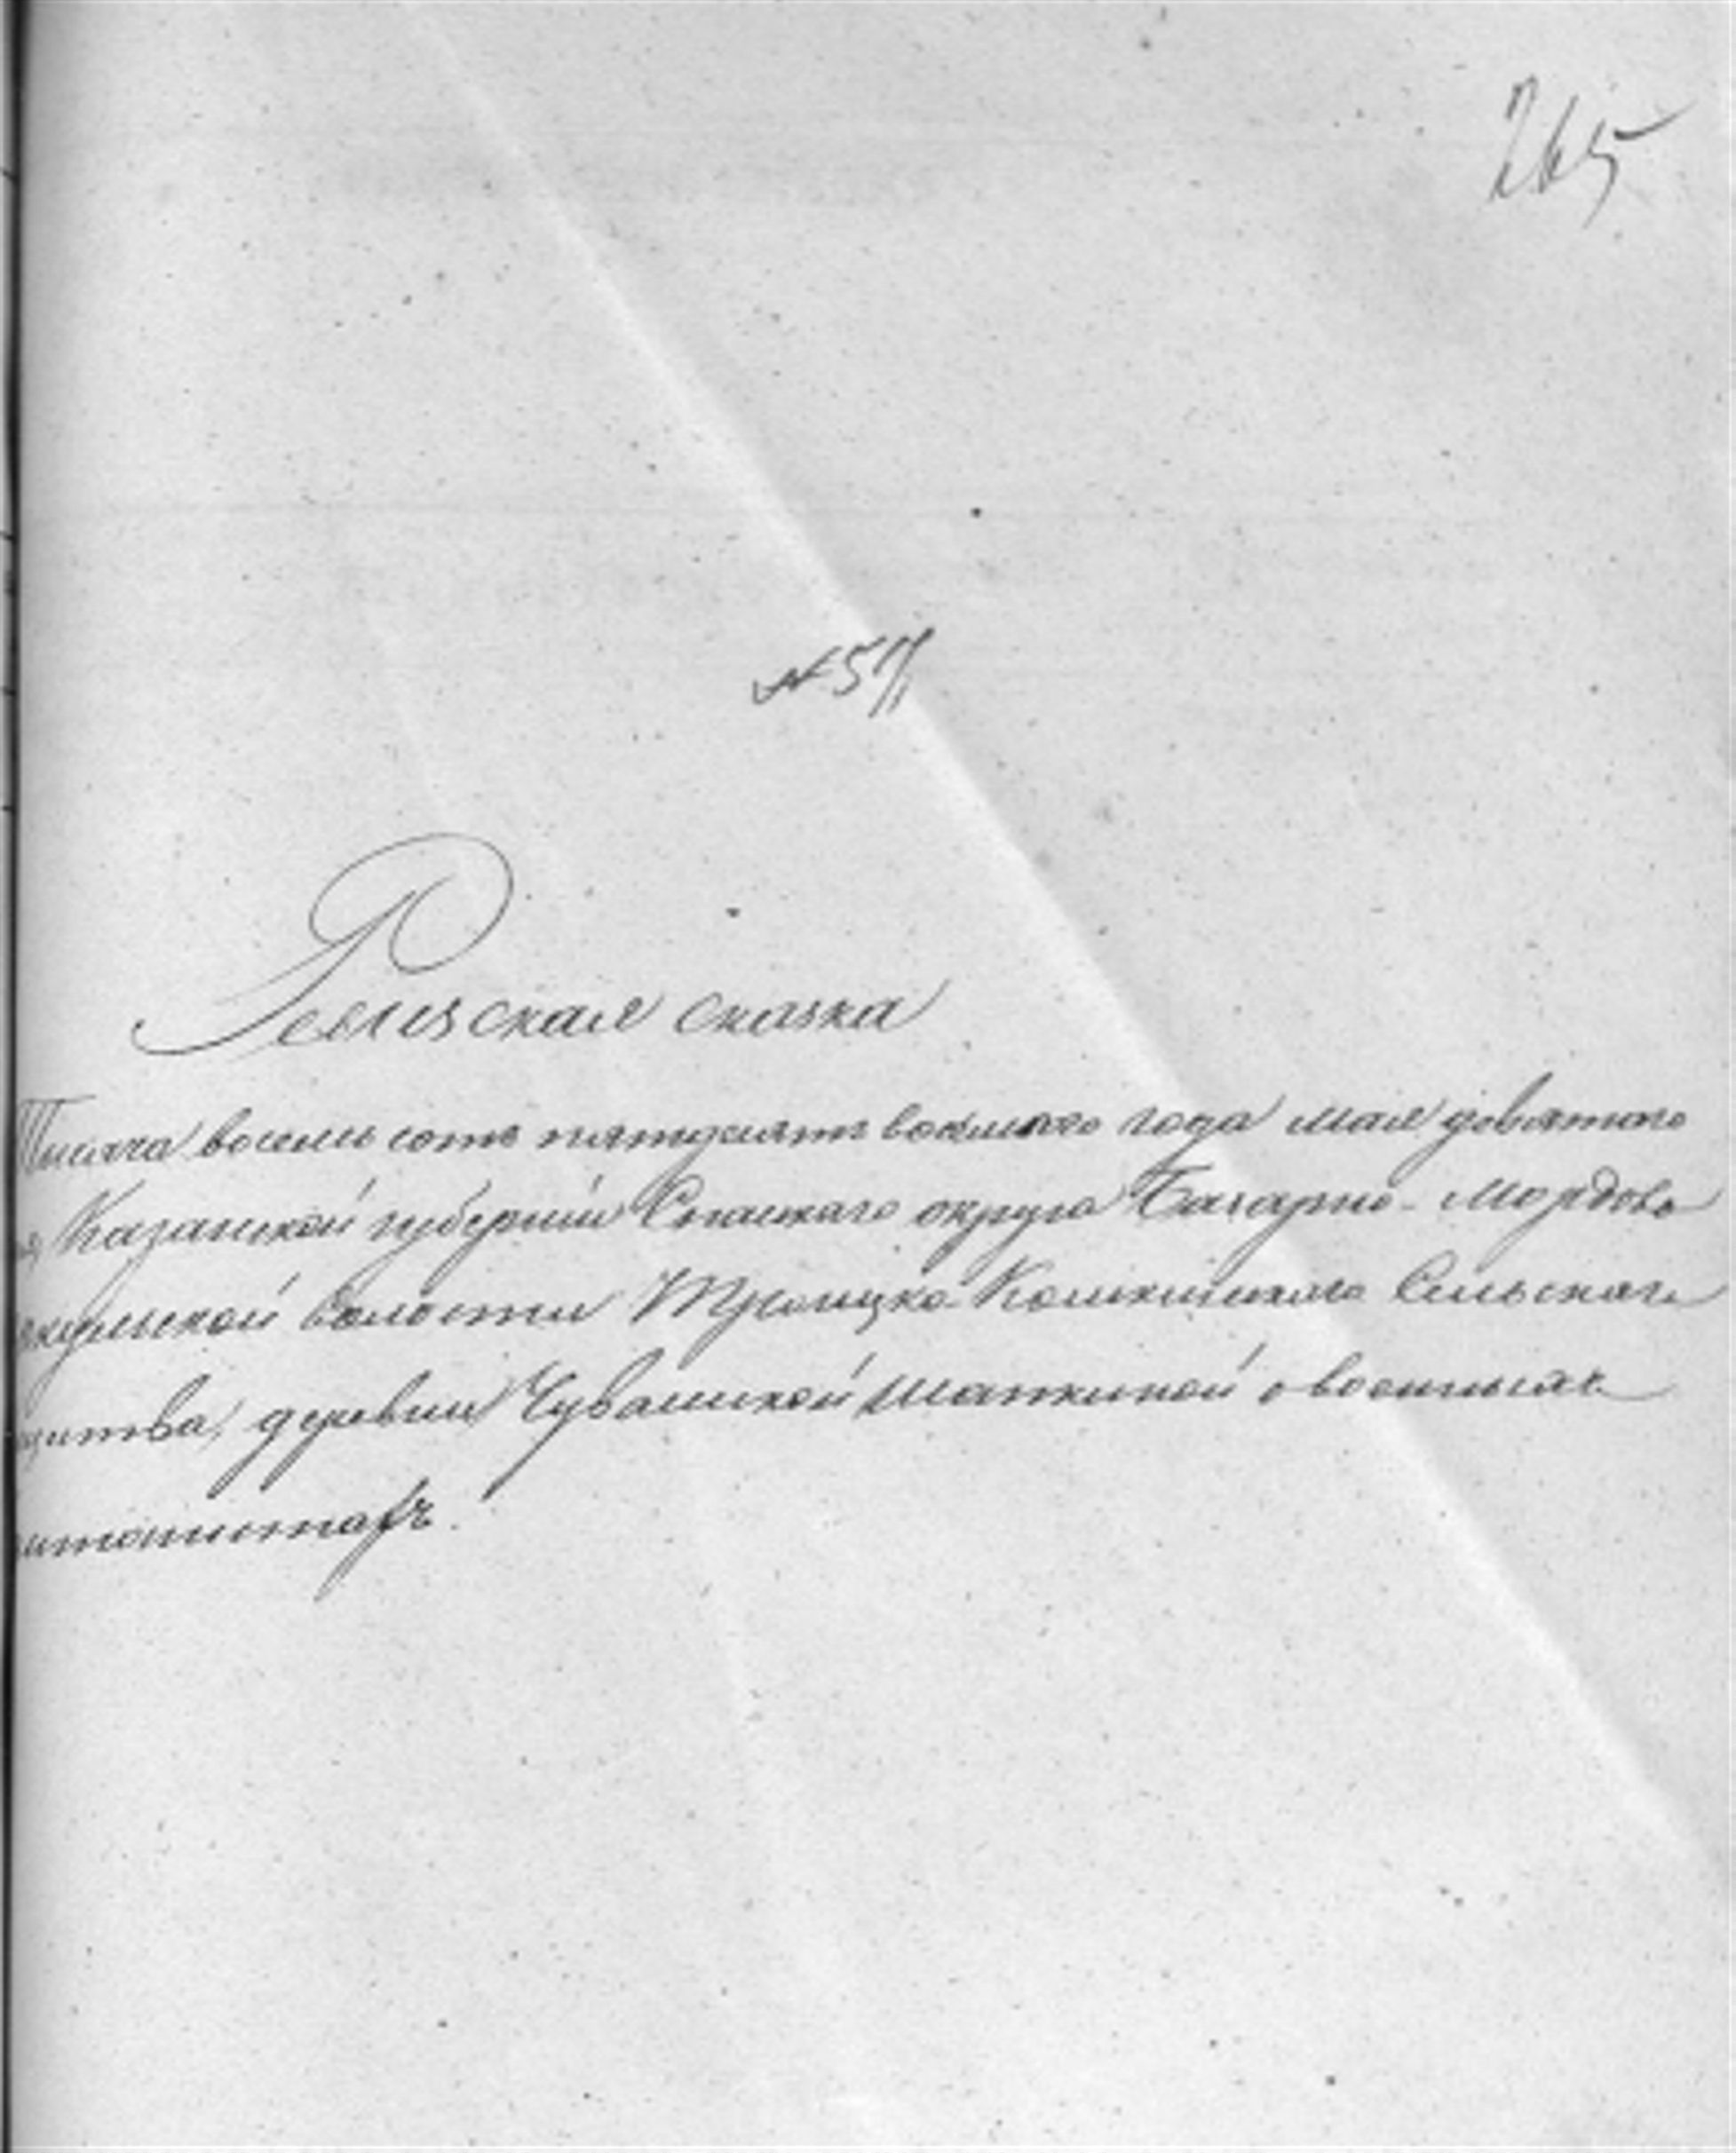 265
№ 57
Ревизская сказка
Тысяча восемь сотъ пятдесятъ восьмаго года мая девятаго
Казанской губерніи Спаскаго округа Багарно-Мордово
кульской волости Троицко-Кошкинскаго Сельскаго
щества, деревни Чувашской Шапкиной о военныхъ